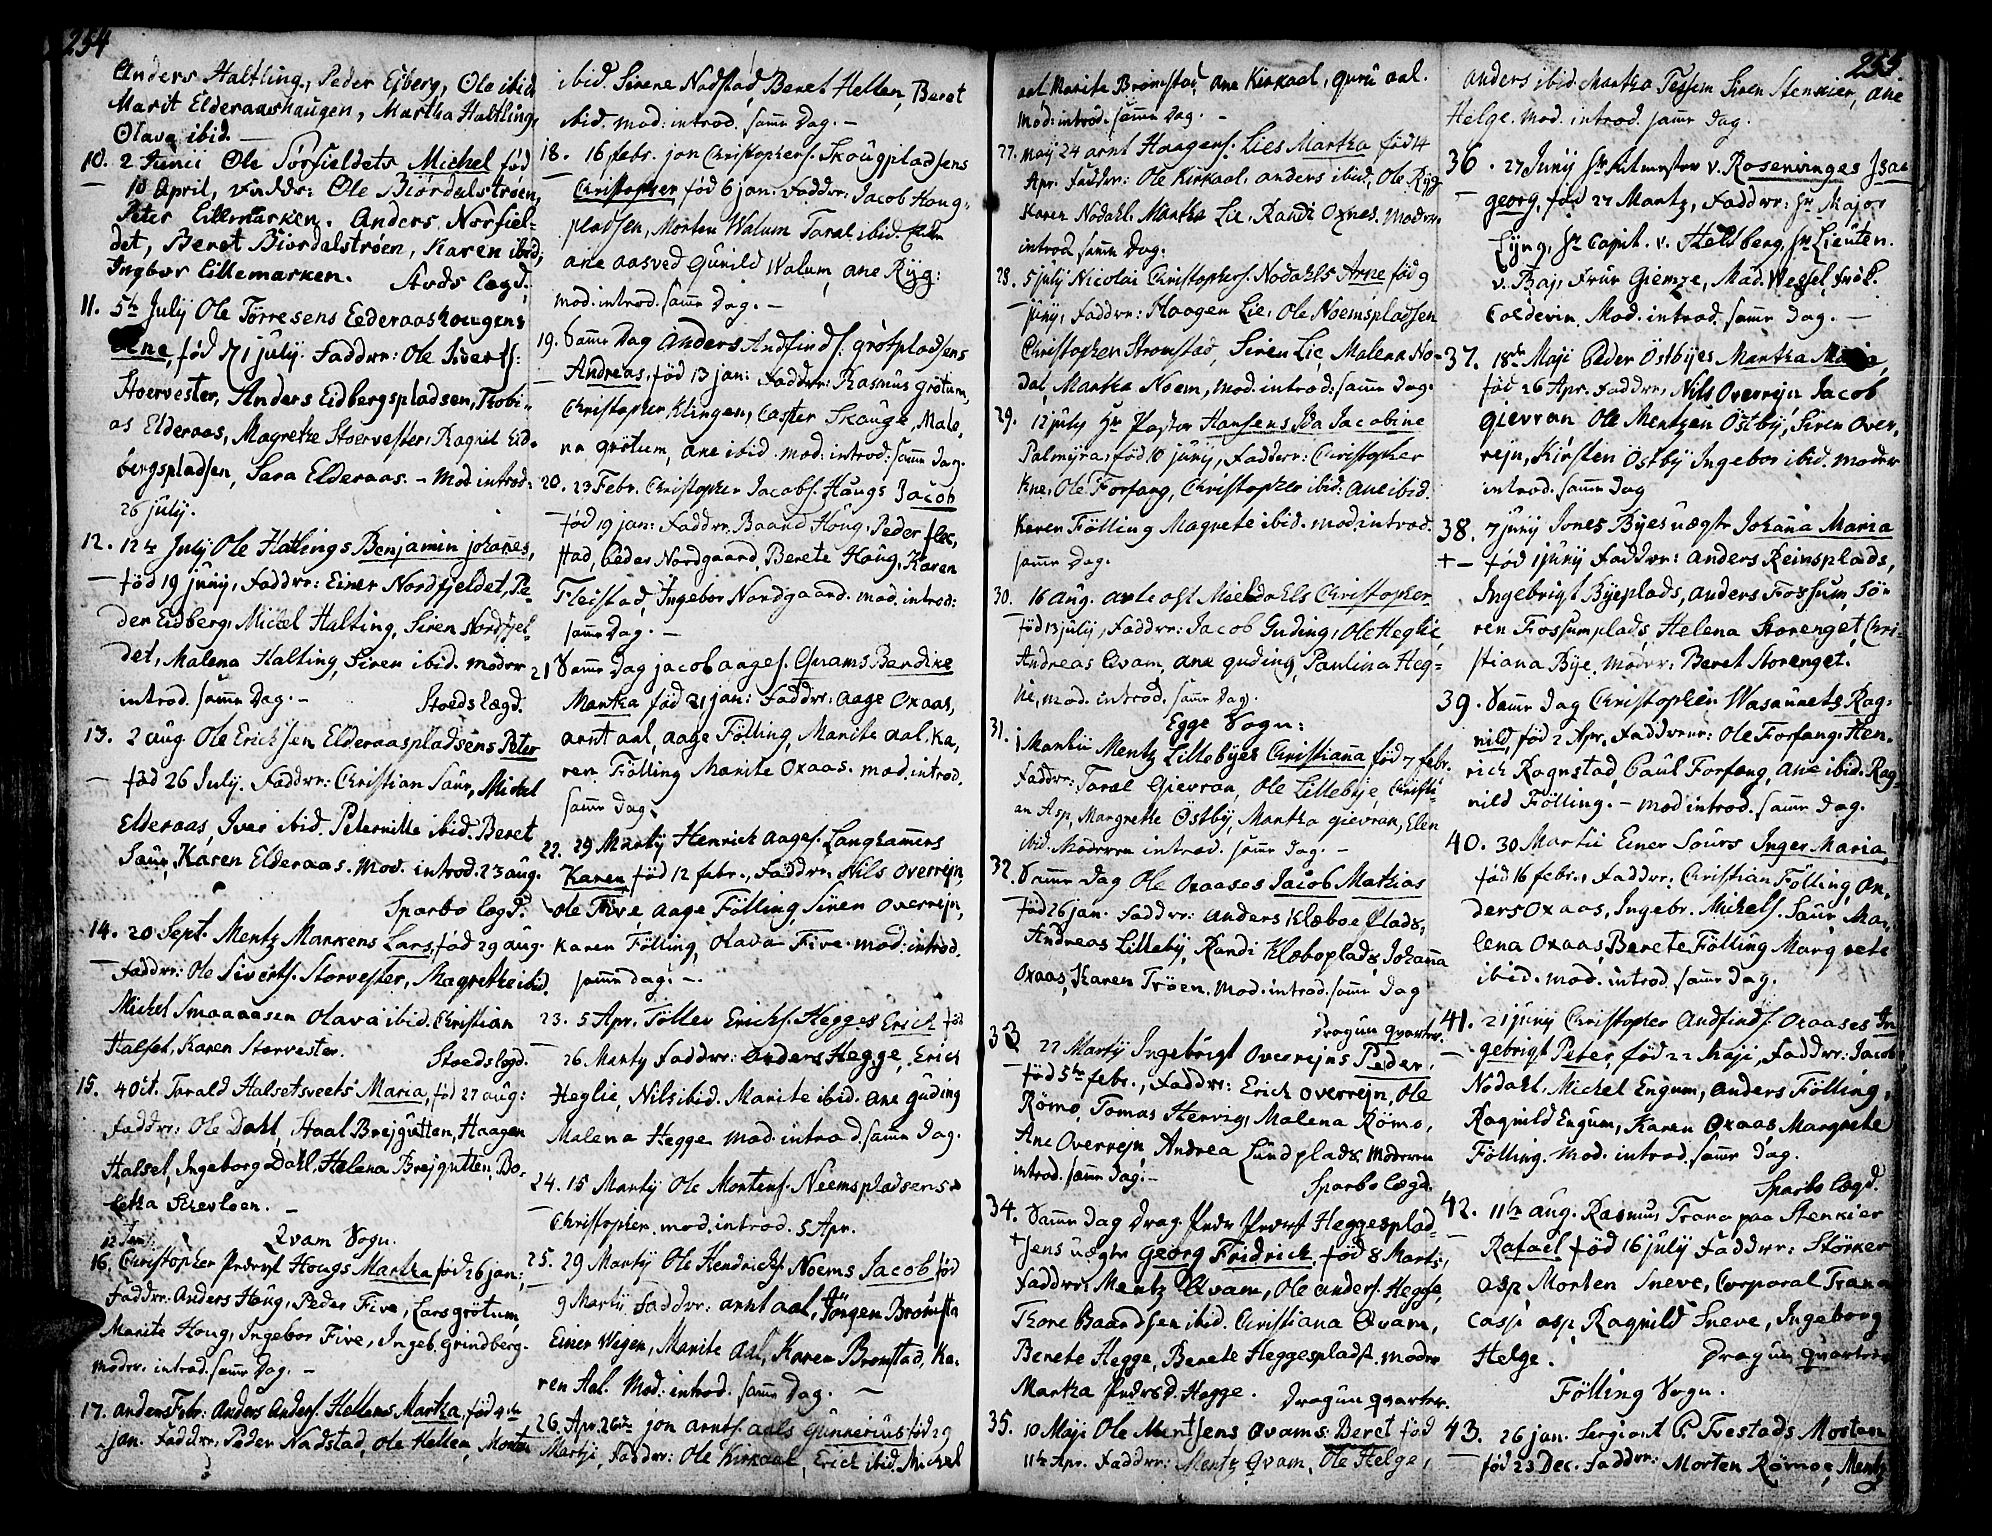 254
Anders Haltling, Peder Ejberg, Ole ibid
Marit Elderaashaugen, Martha Haltling,
Olava ibid. —
10. 2 Junii Ole Sørfieldets Michel fød
10 April, Faddr: Ole Biördalstrøen,
Peter Lillemarken. Anders Norfiel-
det, Beret Biördalstrøen, Karen ibid,
Ingbor Lillemarken. Auds lægd.
11. 5te July Ole Törresens Eederaashougens
fød 1 july. Faddrr: Ole Siverts:
Stoervester, Anders Eidbergspladsen, Tobi-
as Elderaas, Magrethe Stoervester, Ragnil Eid-
bergspladsen, Sara Elderaas. — Mod introd:
26 july.
12. 12te July Ole Hatlings Benjamin johanes,
fød 19 junij, Faddrr: Einer Nordfjeldet, Pe-
der Eidberg, Michel Halting, Siren Nordfjel-
det, Malena Halting, Siren ibid. modrr
introd. samme Dag. — Stoeds lægd.
13. 2 aug Ole Ericksen Elderaaspladsens Peter
fød 26 July. Faddrr: Christian Saur, Michel
Elderaas, Iver ibid. Peternille ibid. Beret
Saur, Karen Elderaas. Mod. introd. 23 aug.
Sparbo lægd.
14. 20 Sept. Mentz Mankens Lars, fød 29 aug.
Faddrr: Ole Siverts. Storvester, Magrethe ibid.
Michel Smaaaasen Olava ibid. Christian
Halset, Karen Storvester. Stoedslægd.
15. 4 Oct. Tarald Halsetsveets Maria, fød 27 aug:
Faddrr: Ole Dahl, Staal Brejgutten, Haagen
Halset, Ingeborg Dahl, Helena Brejgutten, Bo-
letha
Qvam Sogn.
12 Jan:
16. Christopher Hougs Martha fød 26 jan:
Faddrr. Anders Houg, Peder Five, Lars grötum,
Marite Houg, Ingebor Five, Ingeb. Grindberg.
modrr. introd. samme Dag. —
17. anders Anders. Hellems Martha, fød 4de
jan. Faddrr, Peder Nadstad, Ole Hellem, Morten
ibid. Sirene Nadstad, Beret Hellem, Beret
ibid. mod: introd. samme Dag. —
18. 16 febr. jon Christophers. Skougpladsens
Christopher fød 6 jan. Faddrr. Jacob Houg-
pladsen, Morten Walum Taral ibid.
ane aasved Gunild Walum, ane Ryg:
mod. introd. samme Dag. —
19. Samme Dag Anders Andfinds. grötpladsens
Andreas, fød 13 jan: Faddrr: Rasmus grötum,
Christopher Klingen, Casper Skauge, Male-
na grötum, ane ibid. mod: introd: samme Dag.
20. 23 Febr. Christopher Jacobs. Haugs Jacob
fød 19 jan: Faddrr Baard Houg, Peder flec-
stad, Peder Nordgaard, Berete Houg, Karen
Fleistad, Ingebor Nordgaard. mod. introd:
samme Dag. —
21 Samme Dag jacob aages. Qvams Bendike
Martha fød 21 jan: Faddrr: aage Oxaas,
arnt aal, aage Fölling, Marite aal, Ka-
ren Fölling Marite Oxaas. mod. introd.
samme Dag.
22. 29 Martij Henrich aages. Langhamers
Karen fød 12 febr., Faddrr. Nils Overrejn,
Ole Five aage Fölling Siren Overrejn,
Karen Fölling, Olava Five. mod: introd.
samme dag. —
23. 5 Apr. Töller Ericks. Hegges Erich fød
26. Marty Faddrr: Anders Hegge, Erich
Heglie, Nils ibid. Marite ibid. ane guding
Malena Hegge mod. introd. samme Dag.
24. 15 Martij Ole Mortens. Neemspladsens
Christopher. mod. introd. 5 Apr.
25. 29 Martij Ole Hendrichs. Noems Jacob fød
9 Martij Faddrr: arnt aal, Jörgen Bromsta
Einer Wagen, Marite aal, Karen Bromstad, Ka-
ren Aal. Mod: introd. samme Dag. —
26. Apr. 26de jon arnts. aals Gunnerius fød 29
Martji, Faddrr: Ole Kirkaal, Erich ibid. Michel
255.
aal Marite Bromstad, ane Kirkaal, Guru aal.
Mod: introd. samme Dag. —
27. maij 24 arnt Haagens. Lies Martha fød 14
Apr. Faddrr: Ole Kirkaal. anders ibid, Ole Ryg
Karen Nodahl. Martha Lie, Randi Oxnes. Modrr.
introd. samme Dag.
28. 5 july Nicolai Christophers. Nodahls Arne fød 9
junij, Faddrr: Haagen Lie, Ole Noemspladsen
Christopher Bromstad, Siren Lie, Malena No-
dal, Martha Noem, mod. introd. samme Dag.
29. 12 july Hr Pastor Hansens Ida Jacobine
Palmyra, fød 10 junij, Faddrr: Christopher
Kne, Ole Forfang, Christopher ibid: ane ibid.
Karen Fölling Magnete ibid. mod introd.
samme Dag.
30. 16 aug. Christopher
fød 13 july, Faddrr: Jacob Guding, Ole Heglie,
Andreas Qvam, ane guding, Paulina Heg-
lie, mod. introd. samme Dag.
Egge Sogn:
31. 1 Martii Mentz Lillebyes Christiana fød 7 febr.
Faddrr: Taral Gievran, Ole Lillebye, Christi-
an Asp, Margrethe Östby, Martha gievran, Elen
ibid. Moderen introd. samme Dag. —
32. Samme Dag Ole Oxaases Jacob Mathias
fød 26 jan. Faddrr: anders Klæboe Plads,
Andreas Lilleby, Randi Klæboplads, Johanna
Oxaas, Karen Tröen. Mod. introd. samme Dag
Dragun qvarter.
33 22 Martij Ingebrigt Overrejns Peder,
fød 5te febr., Faddrr: Erich Overrejn, Ole
Römo, Tomas Hervig, Malena Römo,
Ane Overrejn, Andrea Lundplads, Moderen
introd. samme Dag. —
Sparbo lægd.
34. Samme Dag Drag. Heggesplad-
sens uægte Georg Fridrich, fød 8 Marti,
Faddrr: Mentz Qvam, Ole anders. Hegge,
Thore Baardsen ibid. Christiana Qvam,
Berete Hegge, Berete Heggesplads. modrr
Martha Hegge. Dragun qvarter.
35. 10 Maji Ole Mentsens Qvams Beret fød
11te Apr. Faddrr: Mentz Qvam, Ole Helge,
anders ibid: Martha Tessem Siren Stenkier, ane
Helge. mod. introd. samme Dag.
36. 27 Junij Hr v. Rosenvinges Isac
georg, fød 27 Martz, Faddrr: Hr Major
Lyng, Hr Capit. v. Heltberg, Hr Lieuten.
v. Baj, Frue Giemze, Mad. Wessel, Frök.
Coldevin. Mod. introd. samme Dag. —
37. 18de Maji Peder Östbyes Martha Marie,
fød 26 Apr. Faddrr, Nils Overrejn Jacob
gievran Ole Mentzen Östby, Siren Over-
rejn, Kirsten Östby Ingebor ibid. modrr
introd. samme Dag
38. 7 junij Jones Byes uægte Johanna Maria
+ — fød 1 junij Faddrr: anders Reinsplads,
Ingebrigt Byeplads, anders Fossum, Sö-
ren Fossumplads, Helena Storenget, Chri-
stiana Bye. Modrr: Beret Storenget.
39. Samme Dag Christopher Wasaunets Rag-
nild, fød 2 Apr. Faddrr: Ole Forfang, Hen-
rich Ragnstad, Paul Forfang, ane ibid. Rag-
nild Fölling. — mod introd. samme Dag.
40. 30 Martii Einer Sours Inger Maria,
fød 16 febr., Faddrr: Christian Fölling, An-
ders Oxaas, Ingebr. Michels. Saur, Ma-
lena Oxaas, Berete Fölling Margrete
ibid. mod. introd. samme Dag.
41. 21 junij Christopher Andfinds. Oxaases In-
gebrigt Peter, fød 22 Maji, Faddrr: Jacob
Nodahl. Michel Engum, Anders Fölling,
Ragnild Engum, Karen Oxaas, Margrete
Fölling. mod. introd. samme Dag.
Sparbo lægd.
42. 11te aug. Rasmus Trana paa Stenkier
Rafael fød 16 july Faddrr: Störker
asp, Morten Sneve, Corporal Trana
Casp. asp, Ragnild Sneve, Ingeborg
Helge. Dragun qvarter
Fölling Sogn.
43. 26 jan. Sergiant P. Tvestads Morten
fød 23 Dec. Faddrr: Morten Römoe, Mentz